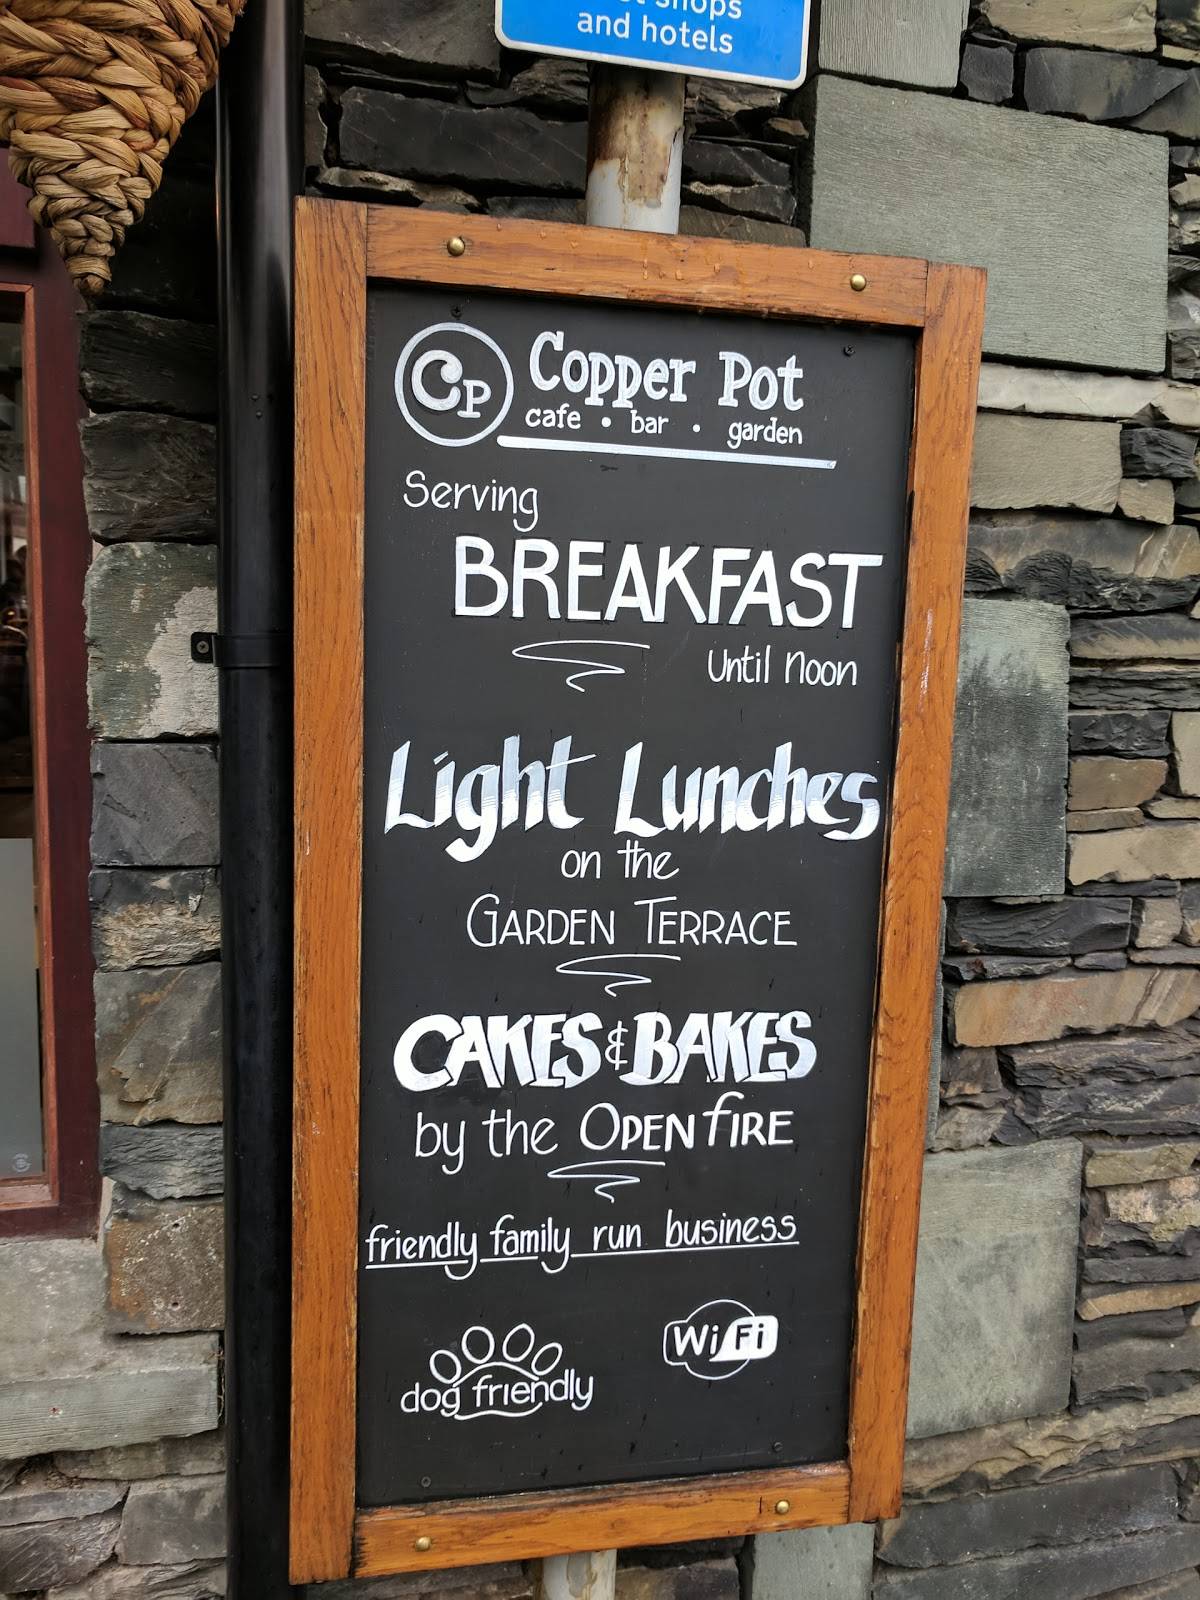 shops
and hotels
CP
Copper Pot
cafe • bar • garden
Serving
BREAKFAST
Until Noon
Light Lunches
on the
GARDEN TERRACE
CAKES & BAKES
by the OPEN fIRE
friendly family run business
WiFi
dog friendly